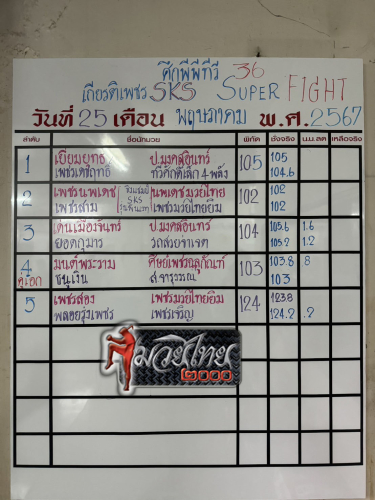 ศึกพีพีทีวี 36
เกียรติเพชร SKS SUPER FIGHT
วันที่ 25 เดือน พฤษภาคม พ.ศ. 2567
ลำดับ ชื่อนักมวย พิกัด ชั่งจริง น.น.ลด เหลือจริง
1 เยี่ยมยุทธ ป.มงคลอินทร์ 105 105
เพชรเดชฤทธิ์ ทวีศักดิ์เล็ก 4 พลัง 104.6
2 เพชรนพเดช นพเดชมวยไทย 102 102
ชิงแชมป์ SKS
เพชรสาม เพชรมวยไทยยิม 102
3 เด่นเมืองจันทร์ ป.มงคลอินทร์ 104 105.6 1.6
ยอดกุมาร 105.2 1.2
4 มนต์พระราม ศิษย์เพชร 103 103.8 8
คู่เอก ชนูเงิน ส.จารุวรรณ 103
5 เพชรส่อง เพชรมวยไทยยิม 124 123.8
พลอยรุ้งเพชร เพชรเจริญ 124.2 .2
มวยไทย
๒๐๐๐